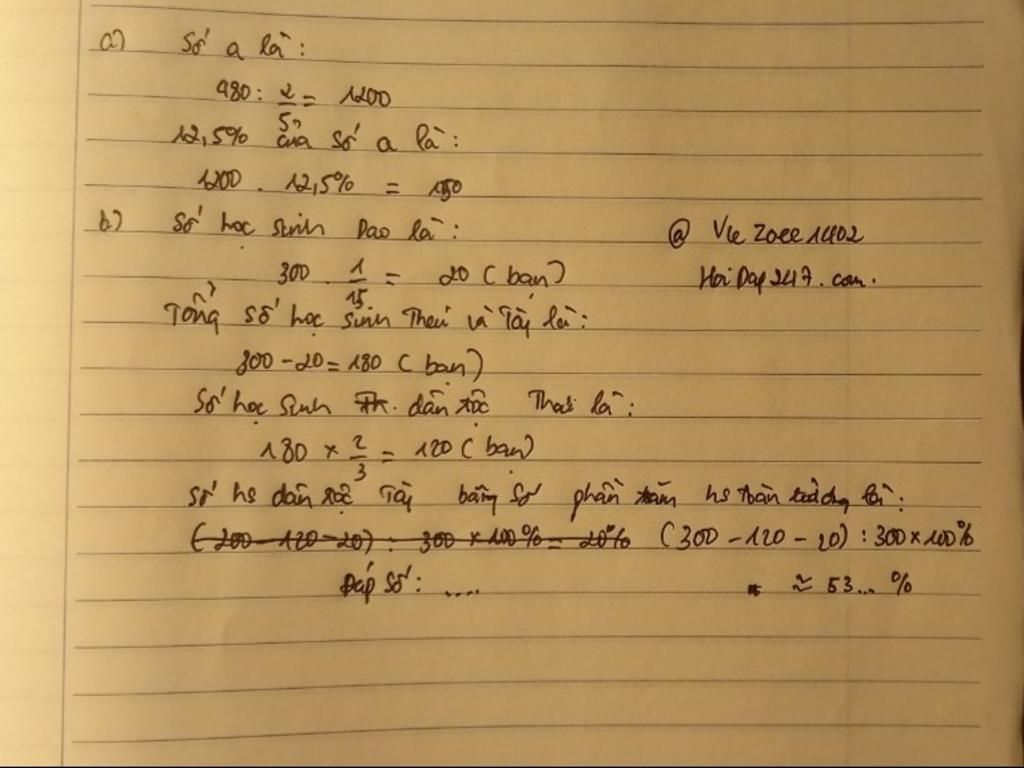 a) Số a là:
480 : 2/5 = 1200
12,5% của số a là:
1200 . 12,5% = 150
b) Số học sinh Dao là:
@ Vie Zoee1402
300 . 1/15 = 20 (bạn)
HoiDap247.com.
Tổng số học sinh Thái và Tày là:
300 - 20 = 180 (bạn)
Số học sinh Th. dân tộc Thái là:
180 × 2/3 = 120 (bạn)
Số hs dân tộc Tày bằng số phần trăm hs toàn trường là:
(200 - 120 - 20) : 300 × 100% = 20% (300 - 120 - 20) : 300 × 100%
Đáp số: .... ≈ 53...%